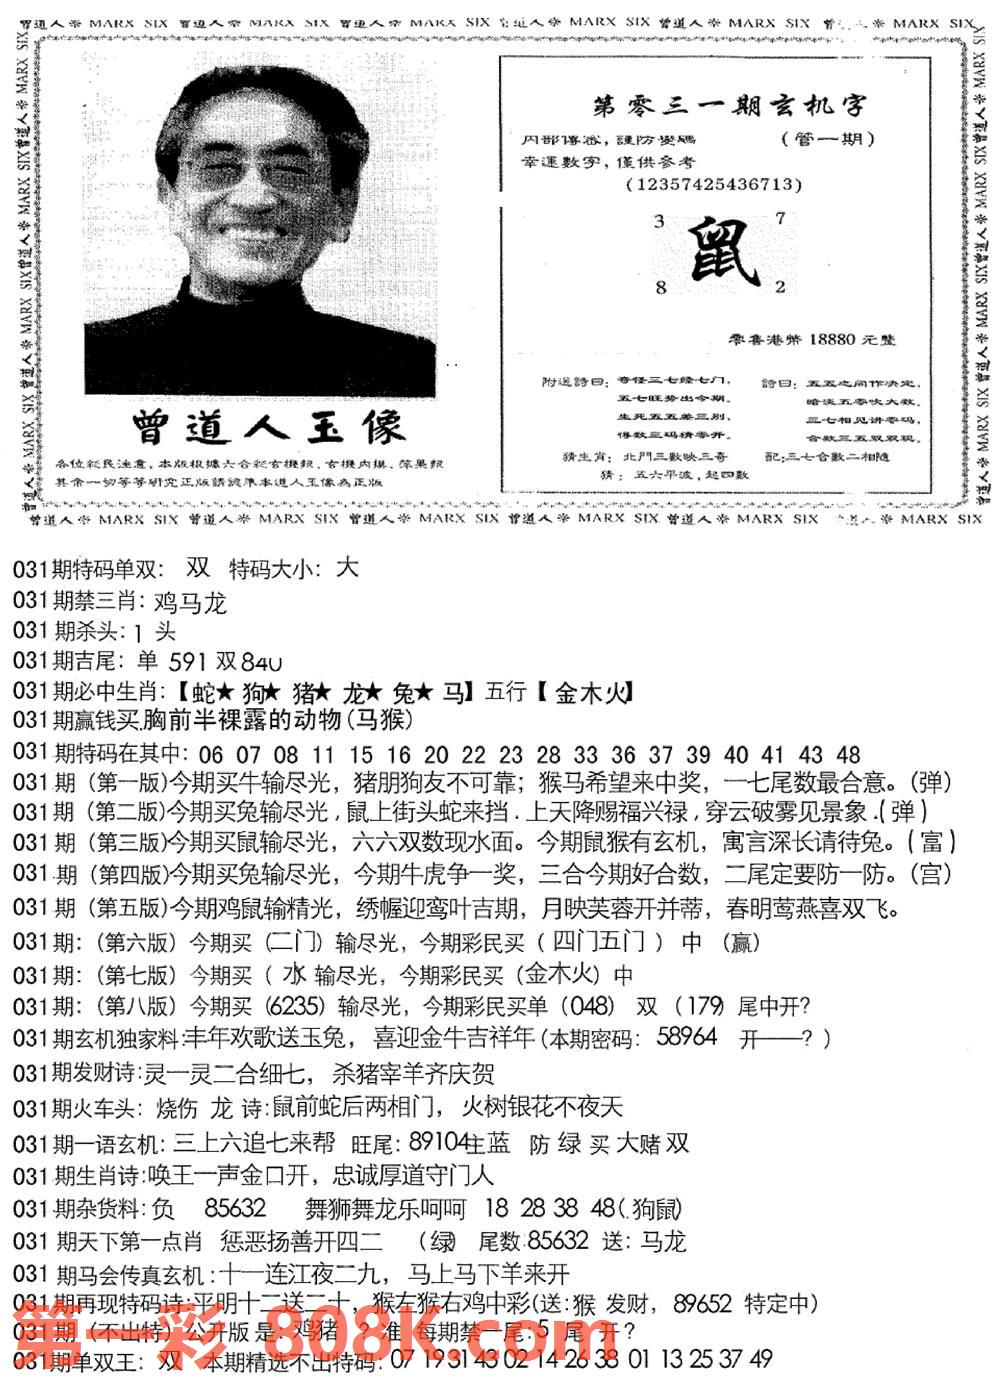 曾道人※ MARX SIX 曾道人※ MARX SIX 曾道人※ MARX SIX 曾道人※ MARX SIX 曾道人※ MARX SIX
第零三一期玄机字
内部傳密，謹防變碼
(管一期)
幸運數字，僅供參考
(12357425436713)
3 7
鼠
8 2
零售港幣 18880 元整
附送詩曰：奇怪三七经七门，
五七旺势出今期。
生死五五差三别，
得数三码猜零开。
詩曰：五五之间作决定，
暗淡五零吹大数。
三七相见讲零码，
合数三五双双现。
猜生肖：北門三數映三奇
配：三七合數二相隨
猜：五六平波，起四數
曾道人玉像
各位彩民注意，本版根據六合彩玄機報、玄機内摸、苹果報
其余一切等等研究正版請認準本道人玉像為正版
曾道人※ MARX SIX 曾道人※ MARX SIX 曾道人※ MARX SIX 曾道人※ MARX SIX 曾道人※ MARX SIX MARX SIX
031期特码单双： 双 特码大小：大
031期禁三肖：鸡马龙
031期杀头：1 头
031期吉尾：单 591 双840
031期必中生肖：【蛇★狗★猪★龙★兔★马】五行【金木火】
031期赢钱买.胸前半裸露的动物(马猴)
031期特码在其中：06 07 08 11 15 16 20 22 23 28 33 36 37 39 40 41 43 48
031期（第一版)今期买牛输尽光，猪朋狗友不可靠；猴马希望来中奖，一七尾数最合意。(弹)
031期（第二版)今期买兔输尽光,鼠上街头蛇来挡.上天降赐福兴禄,穿云破雾见景象.(弹)
031期（第三版)今期买鼠输尽光，六六双数现水面。今期鼠猴有玄机，寓言深长请待兔。(富)
031期（第四版)今期买兔输尽光，今期牛虎争一奖，三合今期好合数，二尾定要防一防。(宫)
031期（第五版)今期鸡鼠输精光，绣幄迎鸾叶吉期，月映芙蓉开并蒂，春明莺燕喜双飞。
031期:（第六版）今期买（二门）输尽光，今期彩民买（四门五门）中（赢）
031期:（第七版）今期买（水 输尽光，今期彩民买（金木火）中
031期:（第八版）今期买（6235）输尽光，今期彩民买单（048） 双（179）尾中开?
031期玄机独家料:丰年欢歌送玉兔，喜迎金牛吉祥年(本期密码: 58964 开——? )
031期发财诗:灵一灵二合细七，杀猪宰羊齐庆贺
031期火车头：烧伤 龙 诗:鼠前蛇后两相门，火树银花不夜天
031期一语玄机: 三上六追七来帮 旺尾: 89104主蓝 防 绿 买 大赌 双
031期生肖诗:唤王一声金口开，忠诚厚道守门人
031期杂货料:负 85632 舞狮舞龙乐呵呵 18 28 38 48(.狗鼠)
031期天下第一点肖 惩恶扬善开四二 （绿）尾数:85632 送：马龙
031期马会传真玄机:十一连江夜二九，马上马下羊来开
031期再现特码诗:平明十二送二十，猴左猴右鸡中彩(送:猴 发财，89652 特定中)
031期（不出特）公开版 是：鸡猪 准 每期禁一尾:5 尾 开?
031期单双王：双 本期精选不出特码：07 19 31 43 02 14 26 38 01 13 25 37 49
第一彩 808K.com